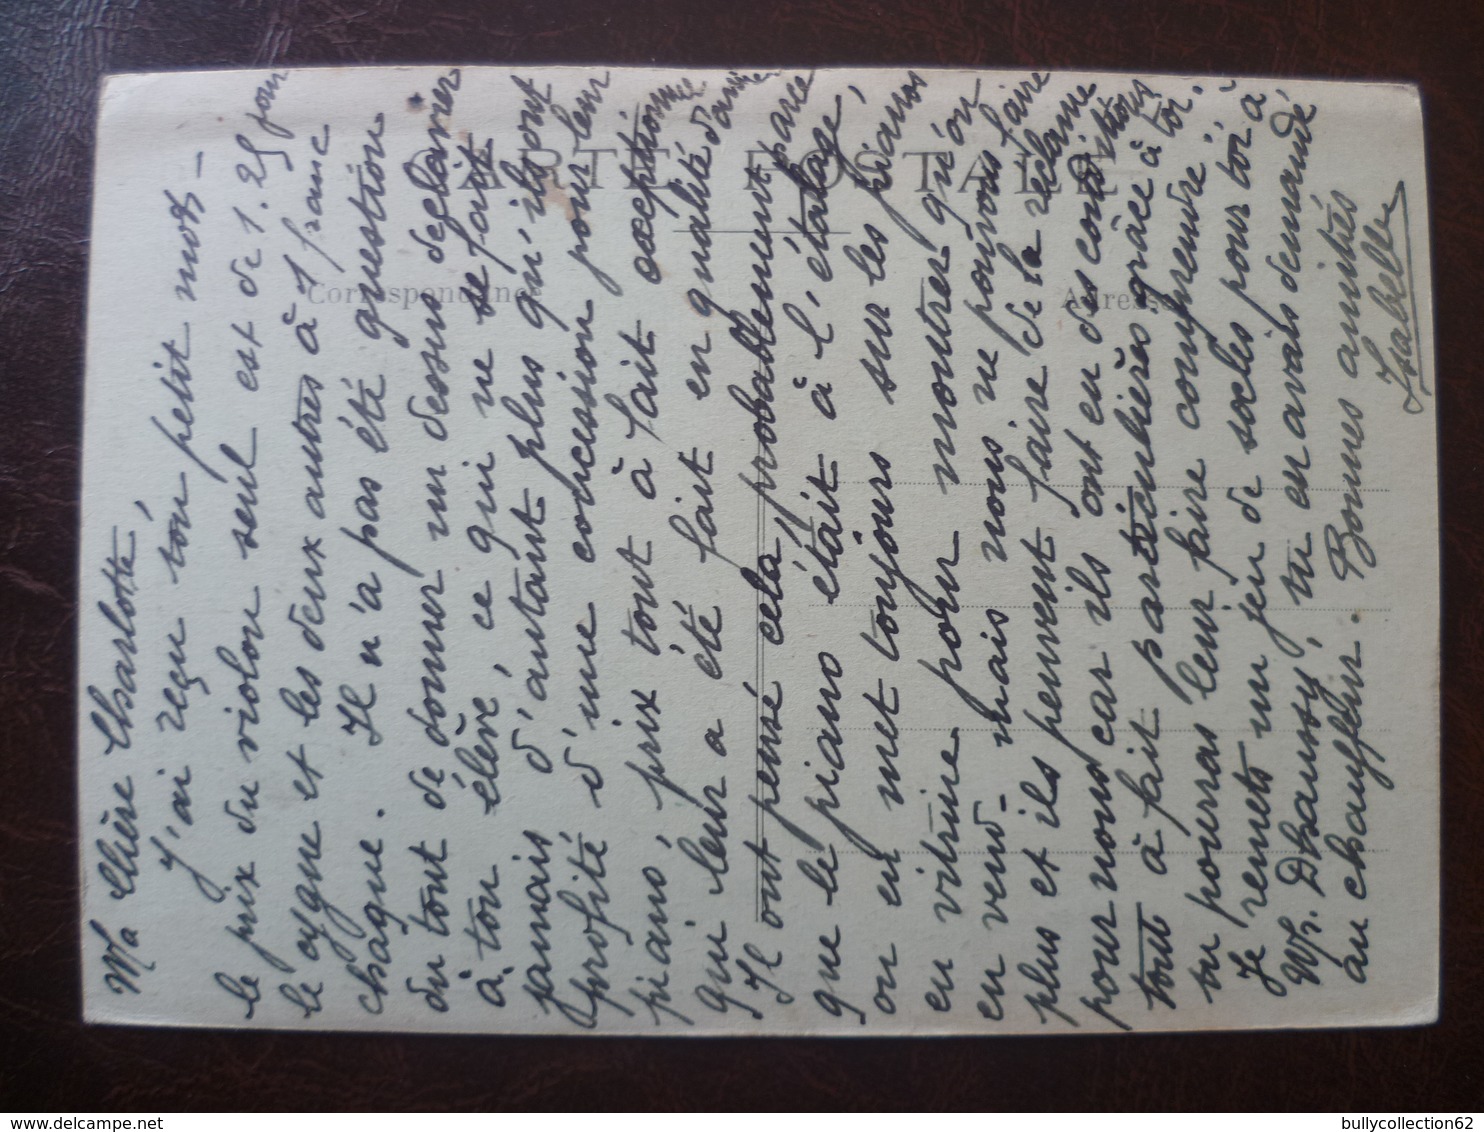 Ma Chère Charlotte,
J'ai reçu ton petit mot -
le prix du violon seul est de 1.25 pour
le cygne et les deux autres à 1 franc
chaque. Il n'a pas été question
du tout de donner un dessus déclarer
à ton élève, ce qui ne se fait
jamais d'autant plus qu'ils ont
profité d'une concession pour leur
piano, prix tout à fait exceptionnel
qui leur a été fait en qualité d'amie
Ils ont pensé cela probablement parce
que le piano était à l'étalage,
on en met toujours sur les pianos
en vitrine pour montrer qu'on
en vend - mais nous ne pouvons faire
plus et ils peuvent faire de la réclame
pour nous car ils ont eu des conditions
tout à fait particulières grâce à toi.
tu pourras leur faire comprendre.
Je remets un jeu de socles pour toi à
Mr. Dhaussy, tu en avais demandé
au chauffeur. Bonnes amitiés
Isabelle
CARTE POSTALE
Correspondance
Adresse
bullycollection62